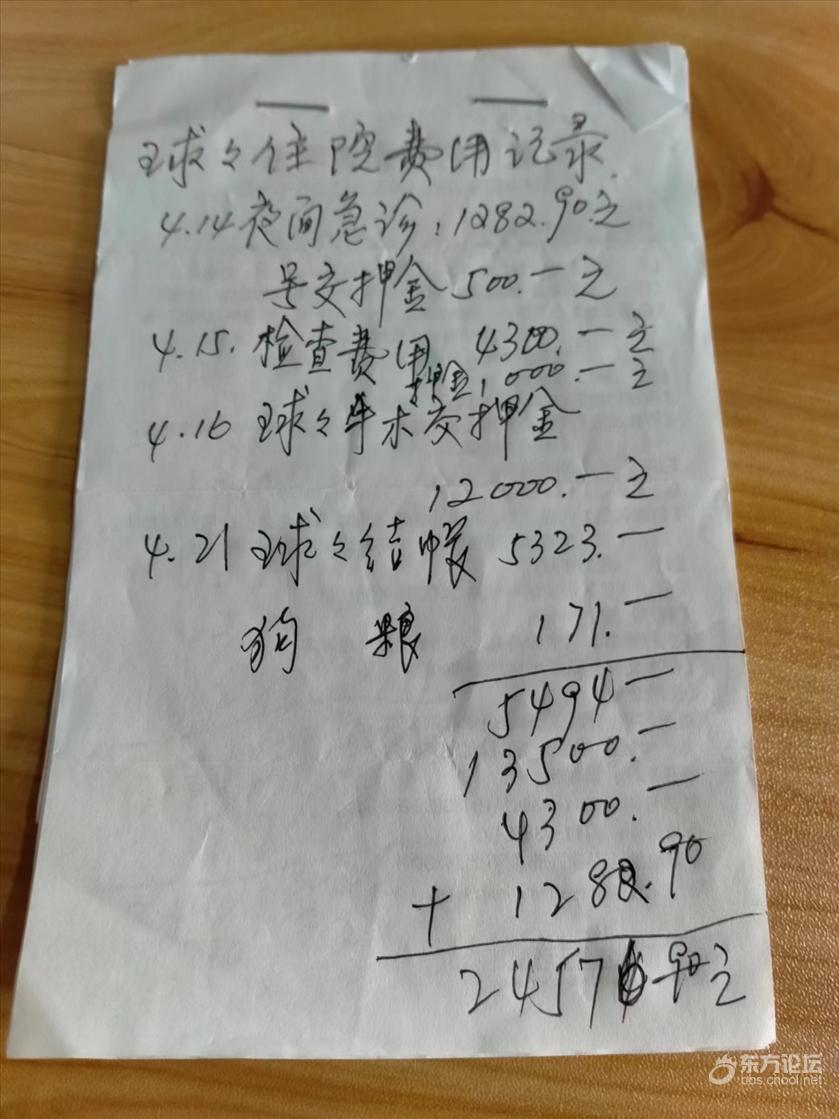 球々住院费用记录.
4.14夜间急诊:1282.90元
另交押金500.一元
4.15.检查费用 4300.一元
押金1000.一元
4.16 球々手术交押金
12000.一元
4.21 球々结帐 5323.一
狗 粮 171.一
5494一
13500.一
4300.一
+ 1282.90
24576.90元
东方论坛
bbs.cnool.net